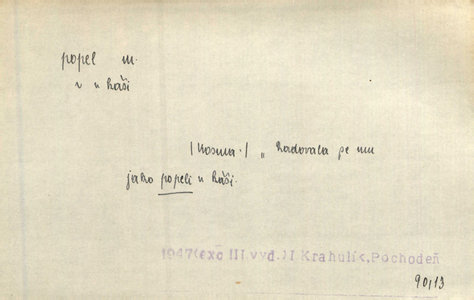 popel m.
v n kaši
/ Kosma./ „ hadovala se mu
jako popeli n kaši.
1947(exc III vyd.)J Krahulík,Pochodeň
90,13